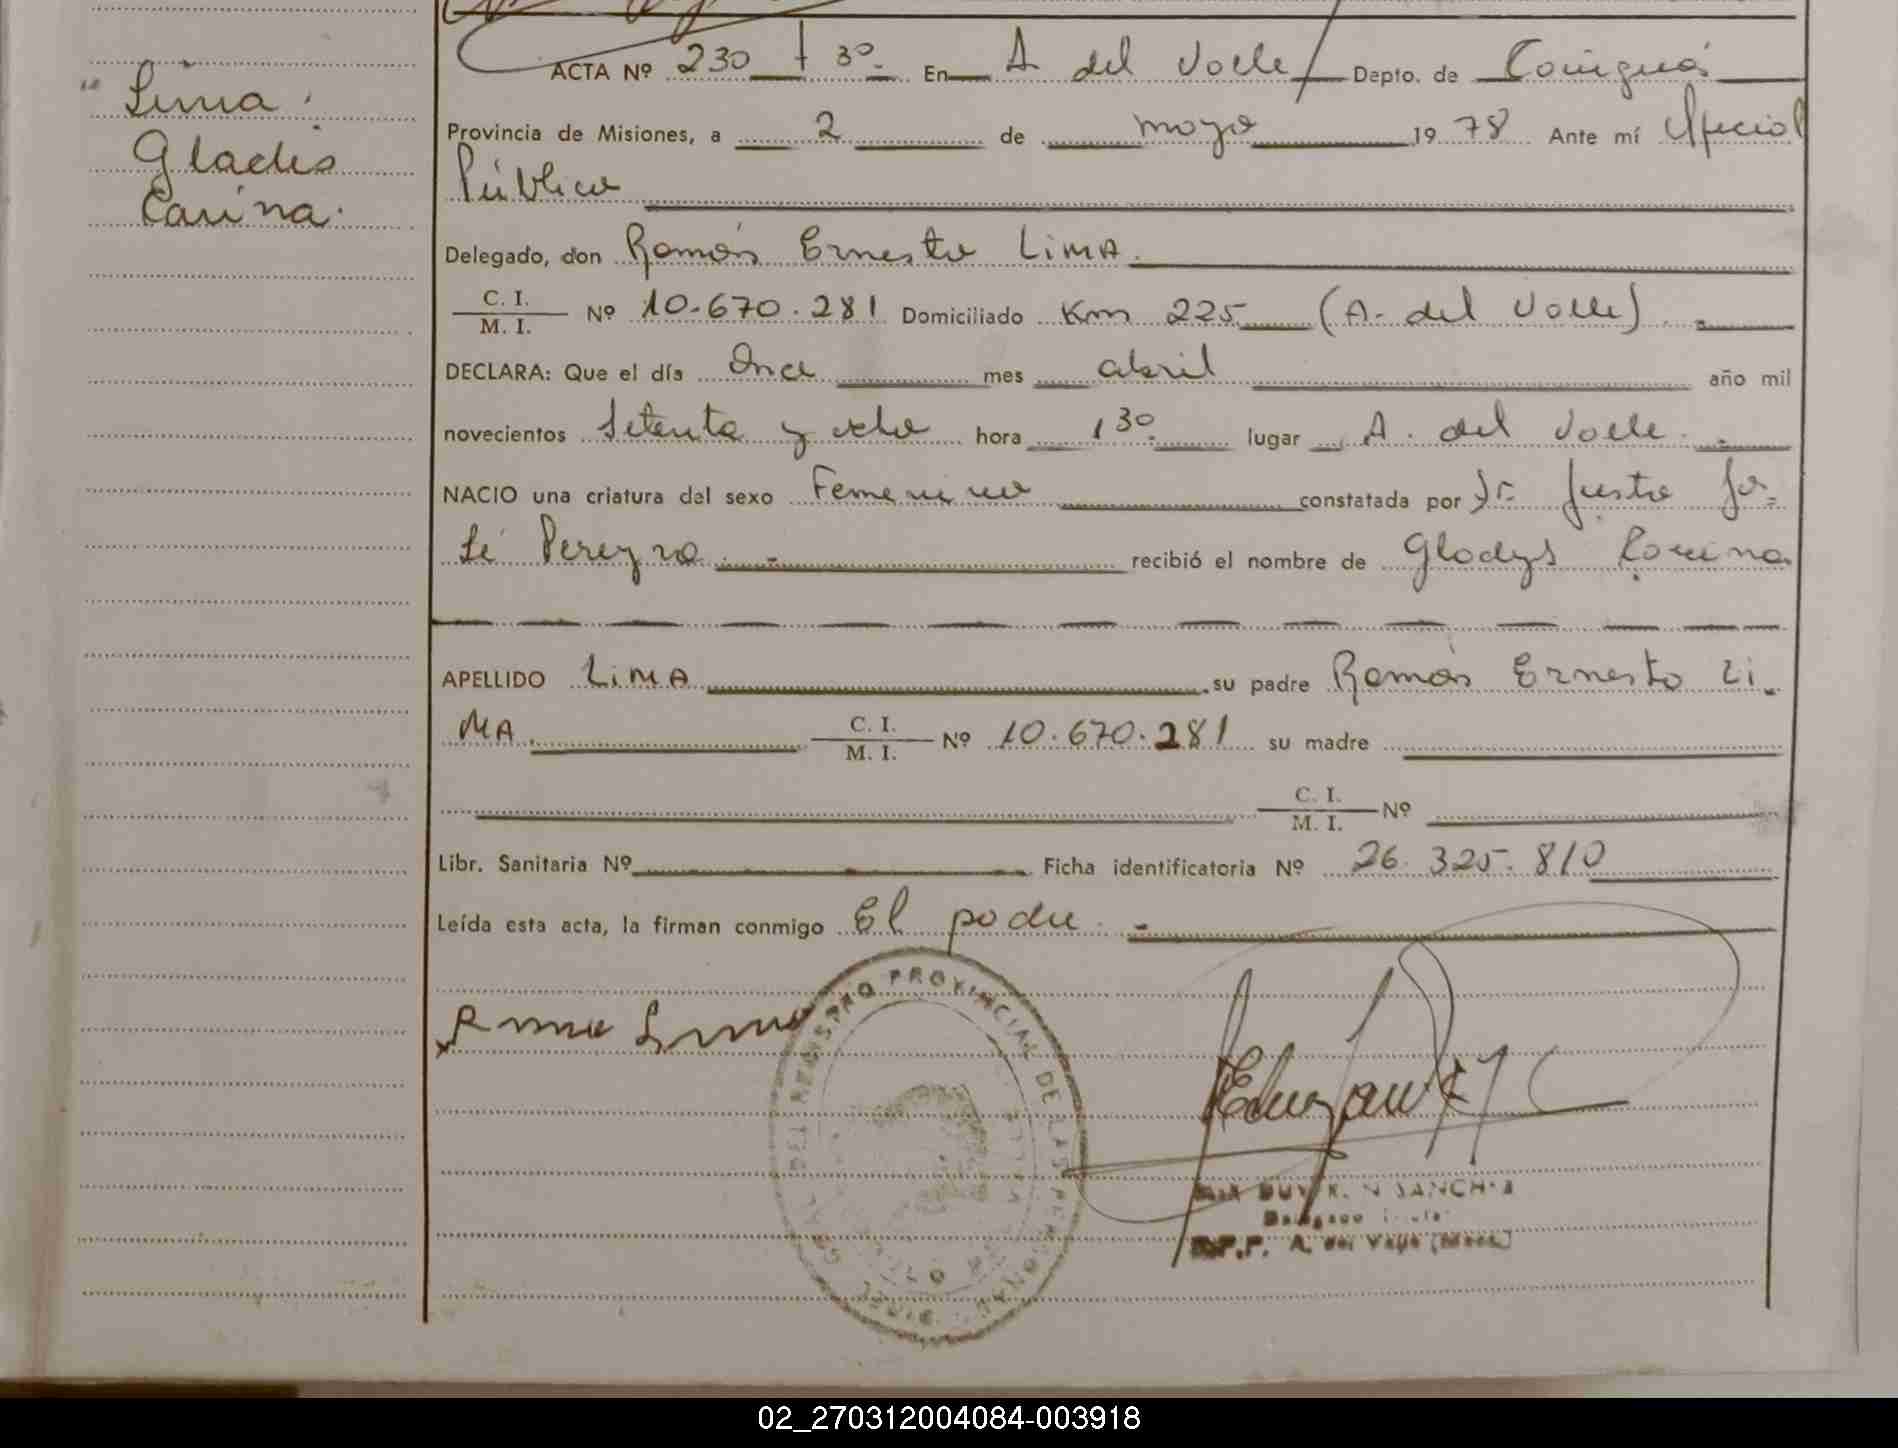 ACTA Nº 230 T 3º. En A del Valle Depto. de Cainguás
" Lima.
Gladis
Carina.
Provincia de Misiones, a 2 de mayo 1978 Ante mí Oficial
Público
Delegado, don Ramón Ernesto LIMA.
C. I.
M. I. Nº 10.670.281 Domiciliado Km 225 (A. del Valle)
DECLARA: Que el día Once mes abril año mil
novecientos Setenta y ocho hora 1 30 lugar A. del Valle.
NACIO una criatura del sexo Femenino constatada por Dr. Justo Jo=
sé Pereyra recibió el nombre de Gladys Carina
APELLIDO LIMA su padre Ramón Ernesto LI-
MA. C. I.
M. I. Nº 10.670.281 su madre
C. I.
M. I. Nº
Libr. Sanitaria Nº Ficha identificatoria Nº 26.325.810
Leída esta acta, la firman conmigo El padre.
GRAL. DEL REGISTRO PROVINCIAL DE LAS PERSONAS
SANCHEZ
A. del Valle
02_270312004084-003918